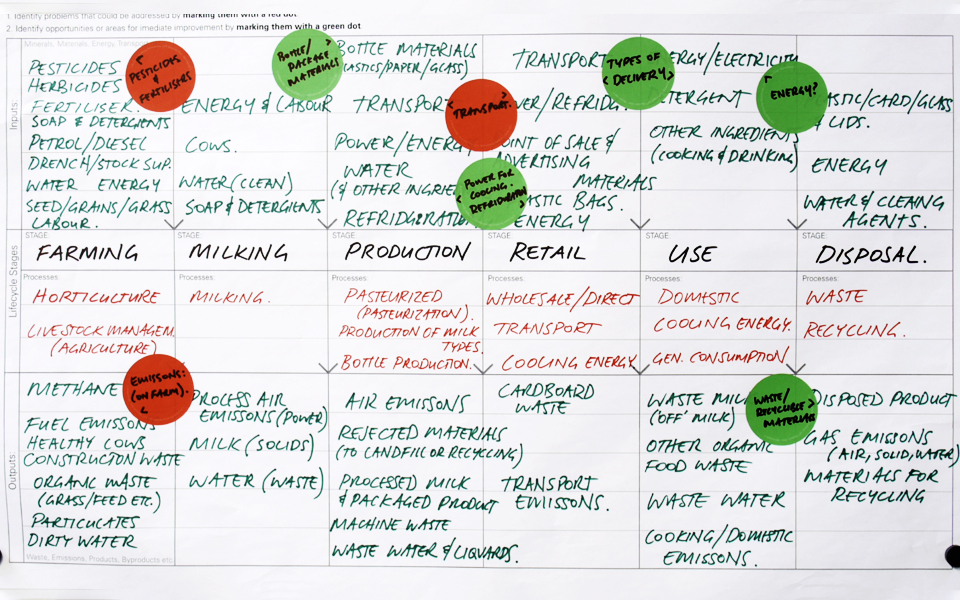 1. Identify problems that could be addressed by marking them with a red dot
2. Identify opportunities or areas for imediate improvement by marking them with a green dot
Inputs:
Minerals, Materials, Energy, Transport
PESTICIDES
HERBICIDES
FERTILISER.
SOAP & DETERGENTS
PETROL/DIESEL
DRENCH/STOCK SUP.
WATER ENERGY
SEED/GRAINS/GRASS
LABOUR.
PESTICIDES
&
FERTILISERS
ENERGY & LABOUR
COWS.
WATER (CLEAN)
SOAP & DETERGENTS
BOTTLE/
PACKAGE
MATERIALS
BOTTLE MATERIALS
(PLASTICS/PAPER/GLASS)
TRANSPORT
POWER/ENERGY
WATER
(& OTHER INGRE
REFRIDGIRATI
TRANSPORT.
POWER FOR
COOLING.
REFRIDGIRATION
TRANSPORT
WER/REFRIDG
OINT OF SALE &
ADVERTISING
MATERIALS
ASTIC BAGS.
ENERGY
TYPES OF
DELIVERY
ERGY/ELECTRICITY
DETERGENT
OTHER INGREDIENTS
(COOKING & DRINKING)
ENERGY?
ASTIC/CARD/GLASS
& LIDS.
ENERGY
WATER & CLEAING
AGENTS.
Lifecycle Stages
STAGE:
FARMING
STAGE:
MILKING
STAGE:
PRODUCTION
STAGE:
RETAIL
STAGE:
USE
STAGE:
DISPOSAL.
Processes:
HORTICULTURE
LIVESTOCK MANAGEM.
(AGRICULTURE)
Processes:
MILKING.
Processes:
PASTEURIZED
(PASTEURIZATION).
PRODUCTION OF MILK
TYPES.
BOTTLE PRODUCTION.
Processes:
WHOLESALE/DIRECT
TRANSPORT
COOLING ENERGY
Processes:
DOMESTIC
COOLING ENERGY.
GEN. CONSUMPTION
Processes:
WASTE
RECYCLING.
Outputs:
METHANE
FUEL EMISSONS
HEALTHY COWS
CONSTRUCTION WASTE
ORGANIC WASTE
(GRASS/FEED ETC.)
PARTICULATES
DIRTY WATER
Waste, Emissions, Products, Byproducts etc.
EMISSONS:
(ON FARM).
PROCESS AIR
EMISSONS (POWER)
MILK (SOLIDS)
WATER (WASTE)
AIR EMISSONS
REJECTED MATERIALS
(TO LANDFILL OR RECYCLING)
PROCESSED MILK
& PACKAGED PRODUCT
MACHINE WASTE
WASTE WATER & LIQUARDS.
CARDBOARD
WASTE
TRANSPORT
EMISSONS.
WASTE MILK
('OFF' MILK)
OTHER ORGANIC
FOOD WASTE
WASTE WATER
COOKING/DOMESTIC
EMISSONS.
WASTE/
RECYCLABLE
MATERIALS
DISPOSED PRODUCT
GAS EMISSONS
(AIR, SOLID, WATER)
MATERIALS FOR
RECYCLING